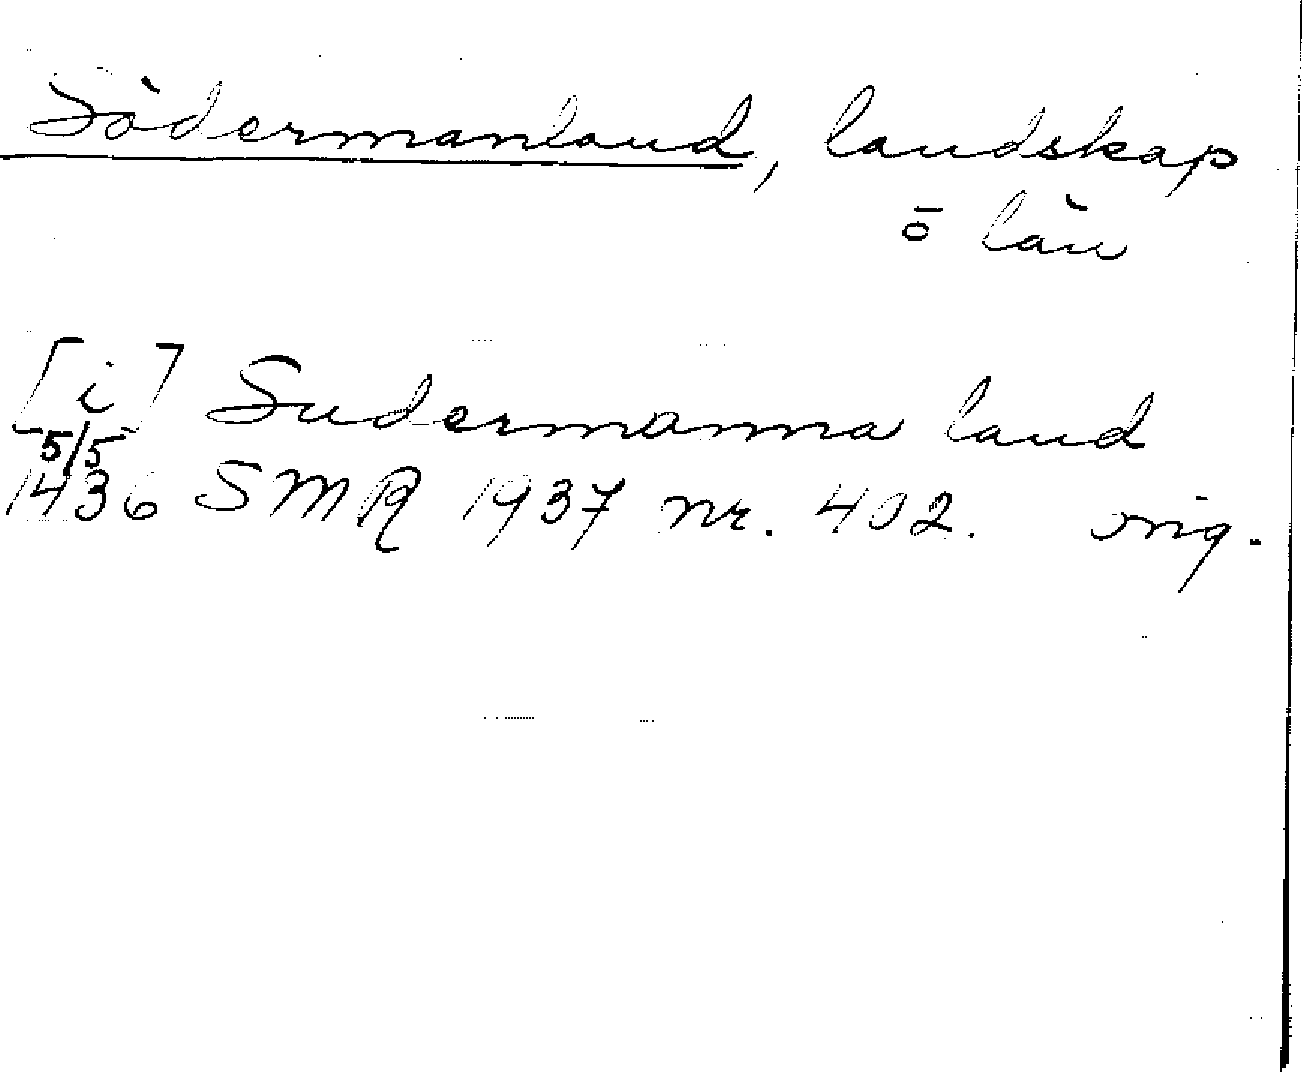 Södermanland, landskap
o län
[i] Sudermanna land
5/5
1436 SMR 1937 nr. 402. orig.